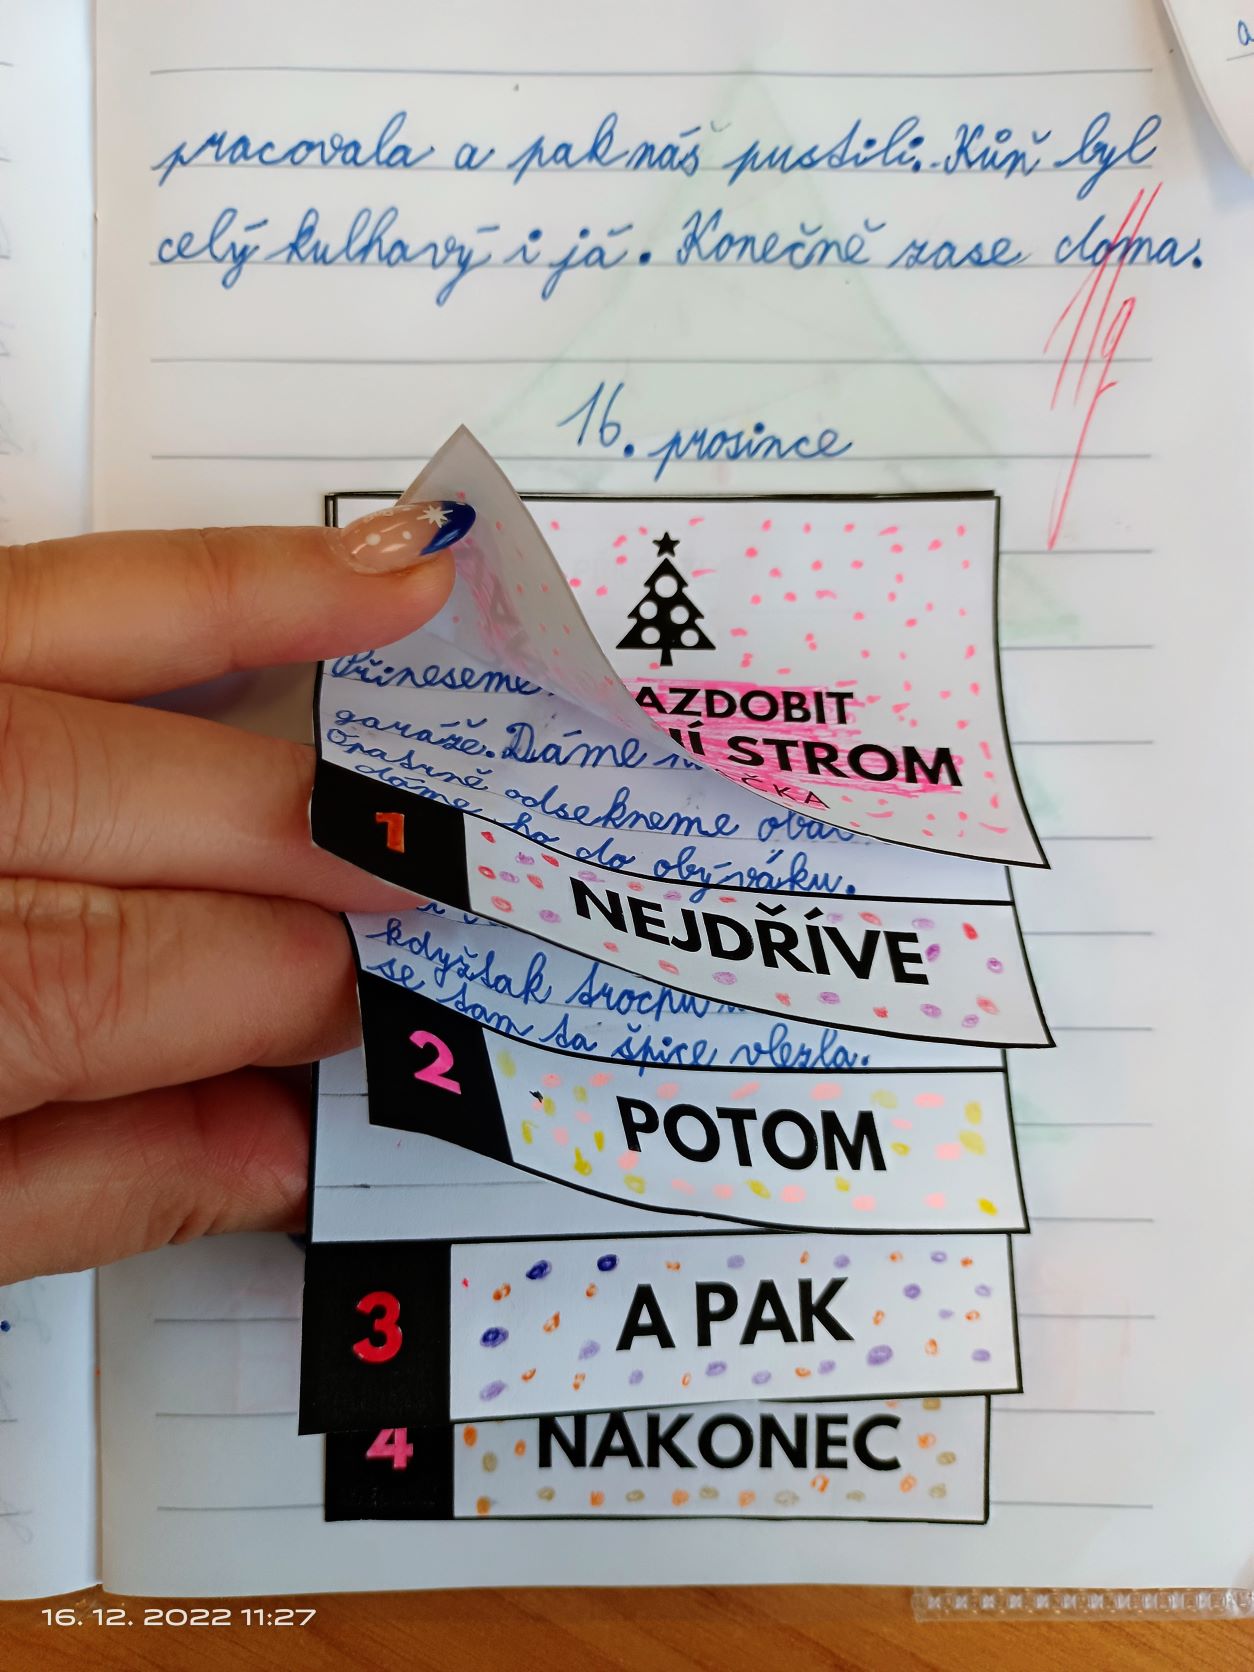 pracovala a pak náš pustili. Kůň byl
celý kulhavý i já. Konečně zase doma.
16. prosince
AZDOBIT
NÍ STROM
ČKA
Přineseme
garáže. Dáme
Opatrně odsekneme
dáme ho do obýváku.
1
NEJDŘÍVE
kdyžtak trochu
se tam ta špice vlezla.
2
POTOM
3
A PAK
4
NAKONEC
16. 12. 2022 11:27